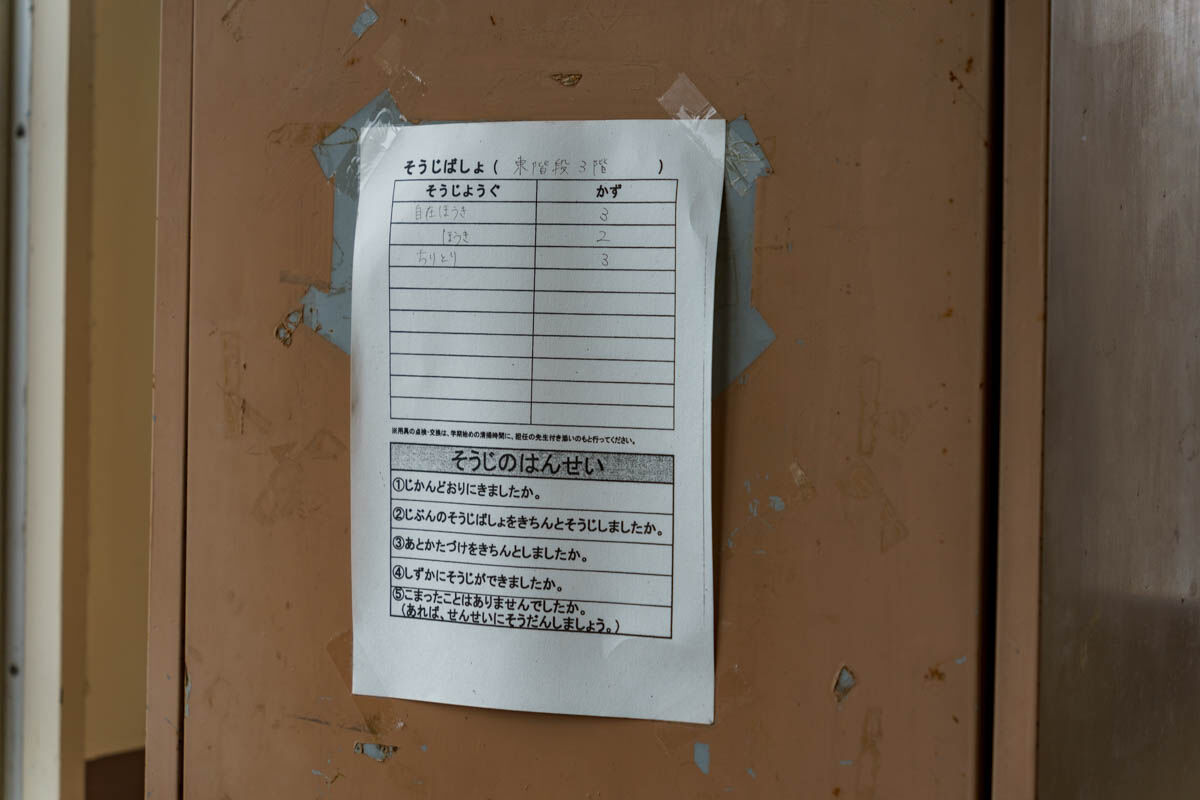 そうじばしょ ( 東階段3階 )
そうじようぐ かず
自在ほうき 3
ほうき 2
ちりとり 3
※用具の点検・交換は、学期始めの清掃時間に、担任の先生付き添いのもと行ってください。
そうじのはんせい
①じかんどおりにきましたか。
②じぶんのそうじばしょをきちんとそうじしましたか。
③あとかたづけをきちんとしましたか。
④しずかにそうじができましたか。
⑤こまったことはありませんでしたか。
(あれば、せんせいにそうだんしましょう。)